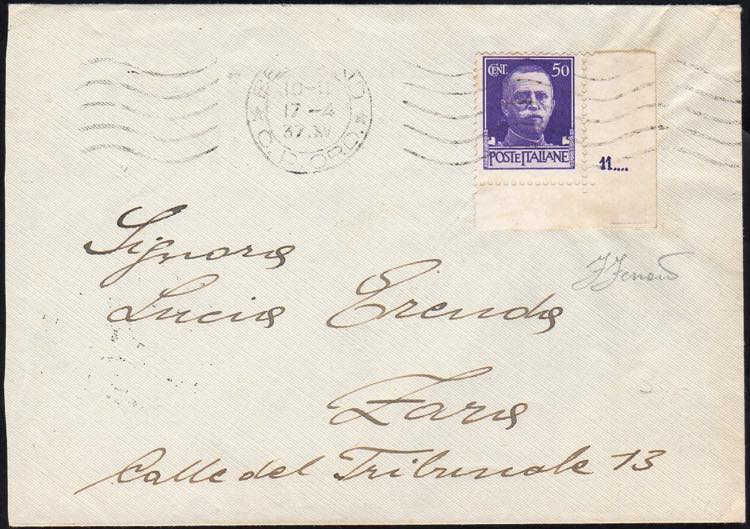 10-11
17-4
37.XV
C. P. ORD.
CENT. 50
POSTE ITALIANE
11....
Signora
Lucia Erenda
Zara
Calle del Tribunale 13